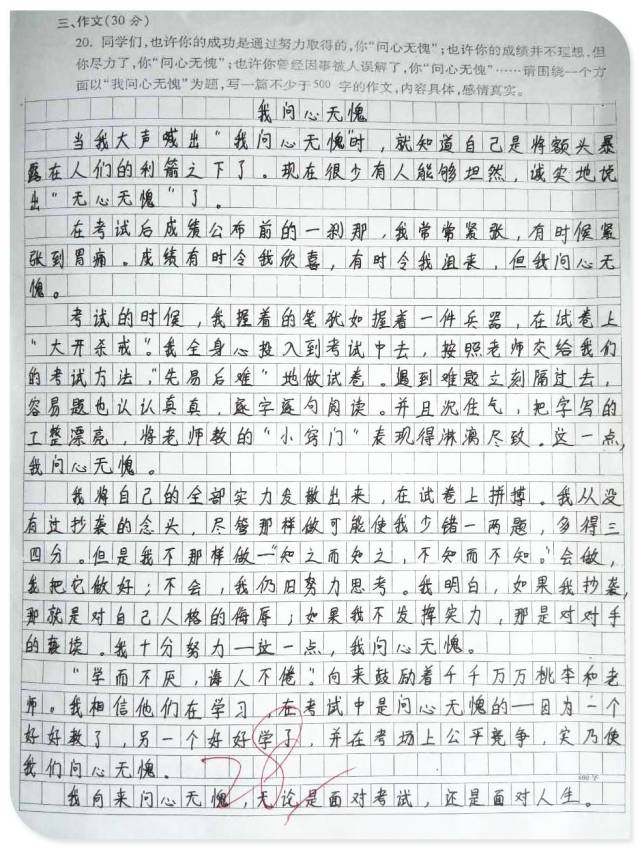 三、作文(30分)
20. 同学们,也许你的成功是通过努力取得的,你“问心无愧”;也许你的成绩并不理想,但
你尽力了,你“问心无愧”;也许你曾经因事被人误解了,你“问心无愧”……请围绕一个方
面以“我问心无愧”为题,写一篇不少于500字的作文,内容具体,感情真实。
我问心无愧
当我大声喊出“我问心无愧”时,就知道自己是将额头暴
露在人们的利箭之下了。现在很少有人能够坦然,诚实地说
出“无心无愧”了。
在考试后成绩公布前的一刹那,我常常紧张,有时候紧
张到胃痛。成绩有时令我欣喜,有时令我沮丧,但我问心无
愧。
考试的时候,我握着的笔犹如握着一件兵器,在试卷上
“大开杀戒”。我全身心投入到考试中去,按照老师交给我们
的考试方法,“先易后难”地做试卷。遇到难题立刻隔过去,
容易题也认认真真,逐字逐句阅读。并且沉住气,把字写的
工整漂亮,将老师教的“小窍门”表现得淋漓尽致。这一点,
我问心无愧。
我将自己的全部实力发撒出来,在试卷上拼搏。我从没
有过抄袭的念头,尽管那样做可能使我少错一两题,多得三
四分。但是我不那样做—“知之而知之,不知而不知。”会做,
我把它做好;不会,我仍旧努力思考。我明白,如果我抄袭,
那就是对自己人格的侮辱;如果我不发挥实力,那是对对手
的亵渎。我十分努力—这一点,我问心无愧。
“学而不厌,诲人不倦”。向来鼓励着千千万万桃李和老
师。我相信他们在学习,在考试中是问心无愧的—因为一个
好好教了,另一个好好学了,并在考场上公平竞争,实乃使
我们问心无愧。
600字
我向来问心无愧,无论是面对考试,还是面对人生。
28